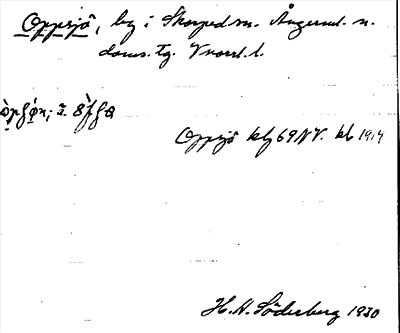 Oppsjö, by i Skorped sn. Ångerml. n.
doms. tg. V norrl. l.
Oppsjö kbg 69 NV. kb 1914
H. A. Söderberg 1930